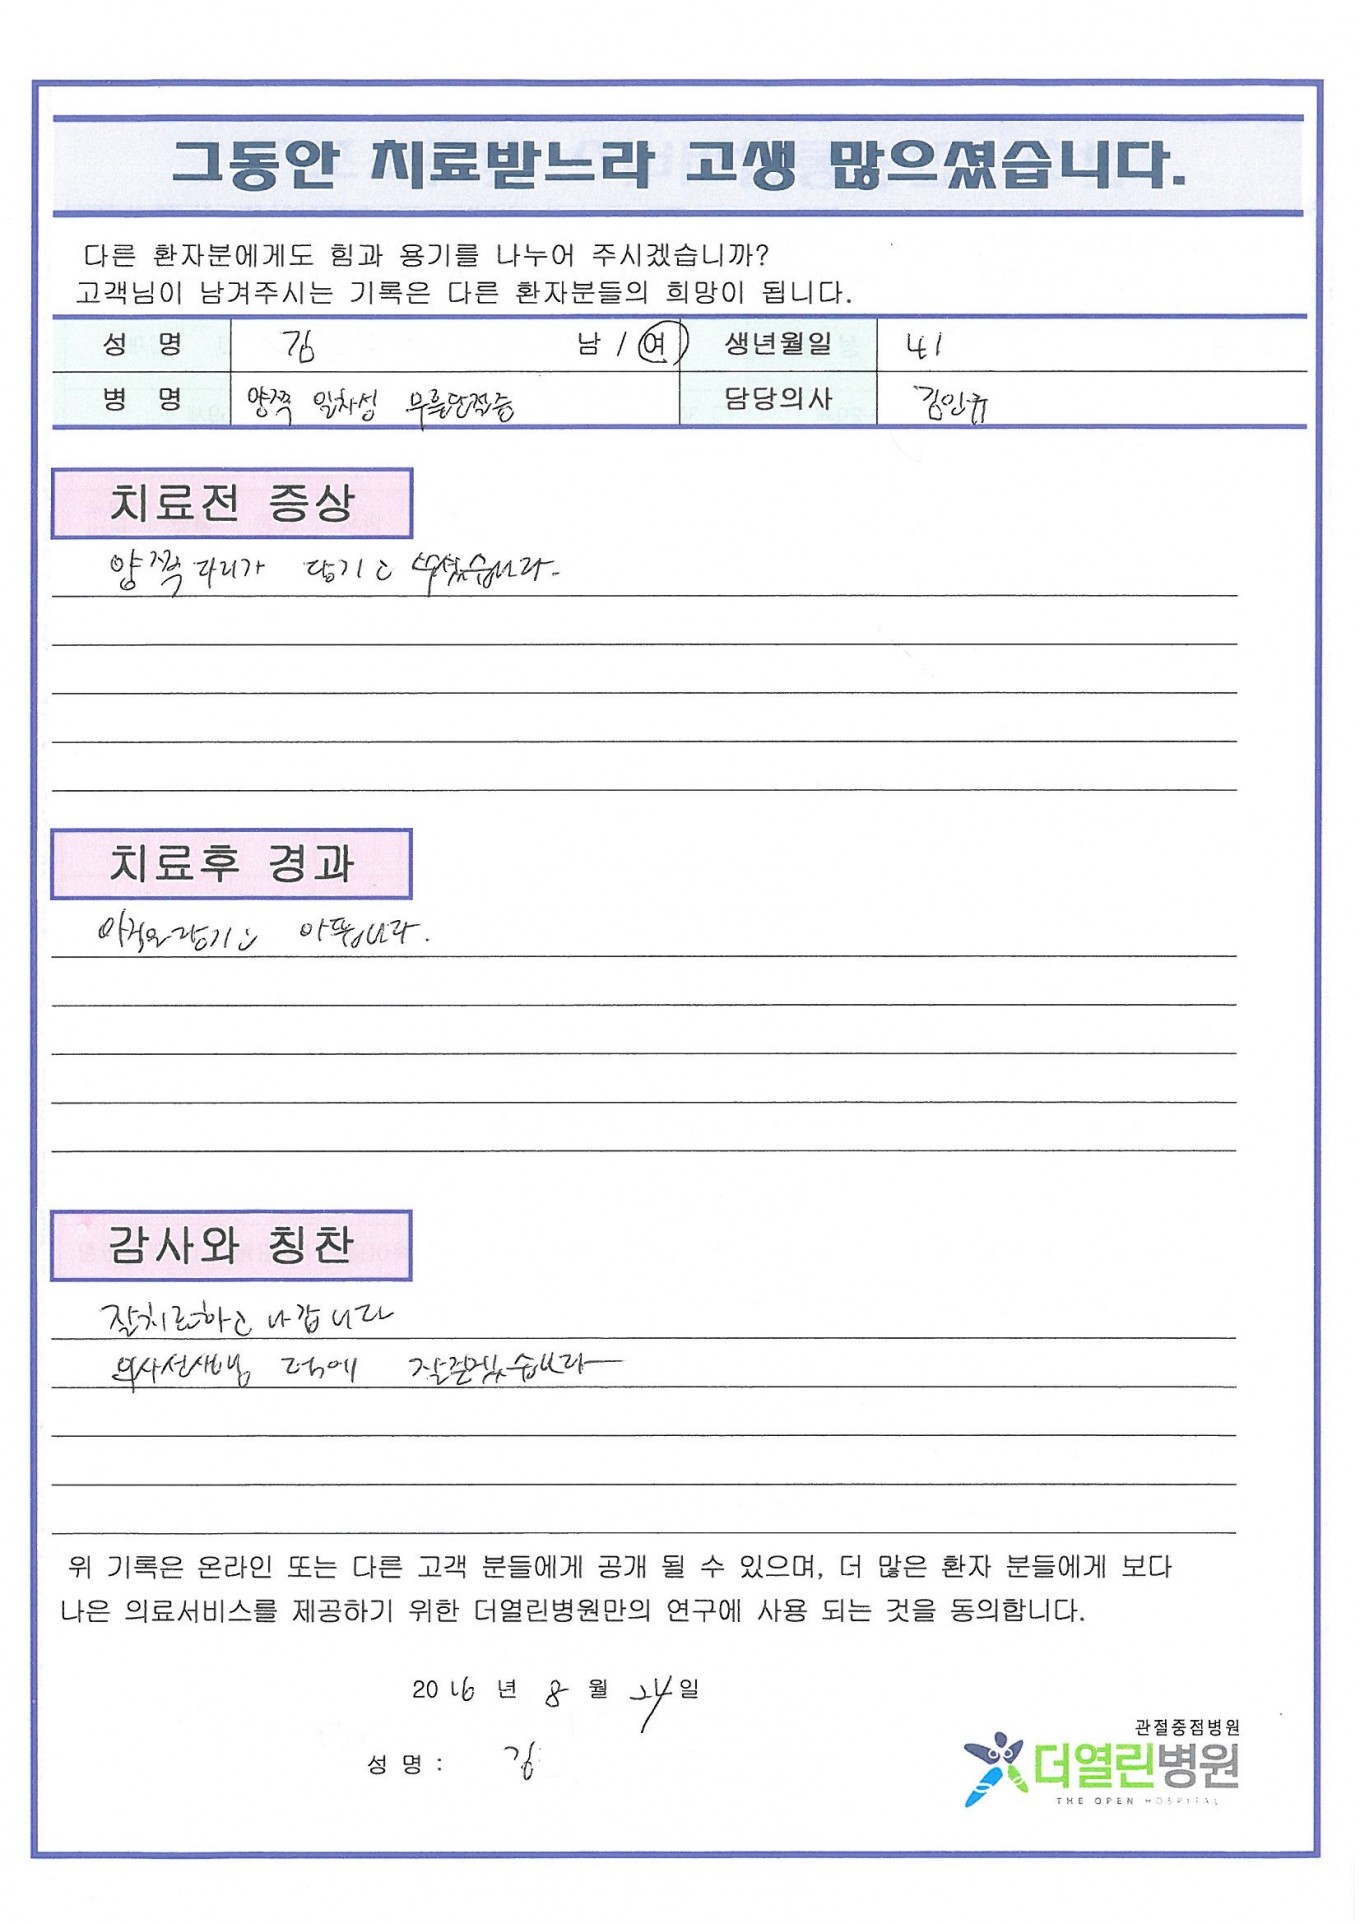 그동안 치료받느라 고생 많으셨습니다.
다른 환자분에게도 힘과 용기를 나누어 주시겠습니까?
고객님이 남겨주시는 기록은 다른 환자분들의 희망이 됩니다.
성 명 김 남 / 여 생년월일 41
병 명 양쪽 일차성 무릎관절증 담당의사 김인규
치료전 증상
양쪽 다리가 당기고 쑤셨습니다.
치료후 경과
아직은 당기고 아픕니다.
감사와 칭찬
잘치료하고 나갑니다
의사선생님 덕에 잘걷겠습니다
위 기록은 온라인 또는 다른 고객 분들에게 공개 될 수 있으며, 더 많은 환자 분들에게 보다
나은 의료서비스를 제공하기 위한 더열린병원만의 연구에 사용 되는 것을 동의합니다.
2016 년 8 월 24 일
성 명 : 김
관절중점병원
더열린병원
THE OPEN HOSPITAL